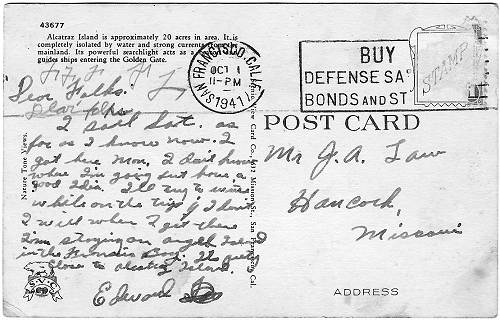 43677
Alcatraz Island is approximately 20 acres in area. It is
completely isolated by water and strong currents from the
mainland. Its powerful searchlight acts as a
guides ships entering the Golden Gate.
SAN FRANCISCO, CALIF.
OCT 1
11-PM
1941
BUY
DEFENSE SA
BONDS AND ST
STAMP
POST CARD
Dear Folks.
I sail Sat. as
far as I know now. I
got here Mon. I don't know
where I'm going but have a
good idea. I'll try to write
while on the trip if I don't
I will when I get there
I'm staying on angel Island
in the Francisco Bay. It
close to alcatraz Island.
Edward
Mr J. A. Law
Hancock,
Missouri
ADDRESS
Nature Tone Views.
View Card Co., Mission St., San Francisco, Cal.